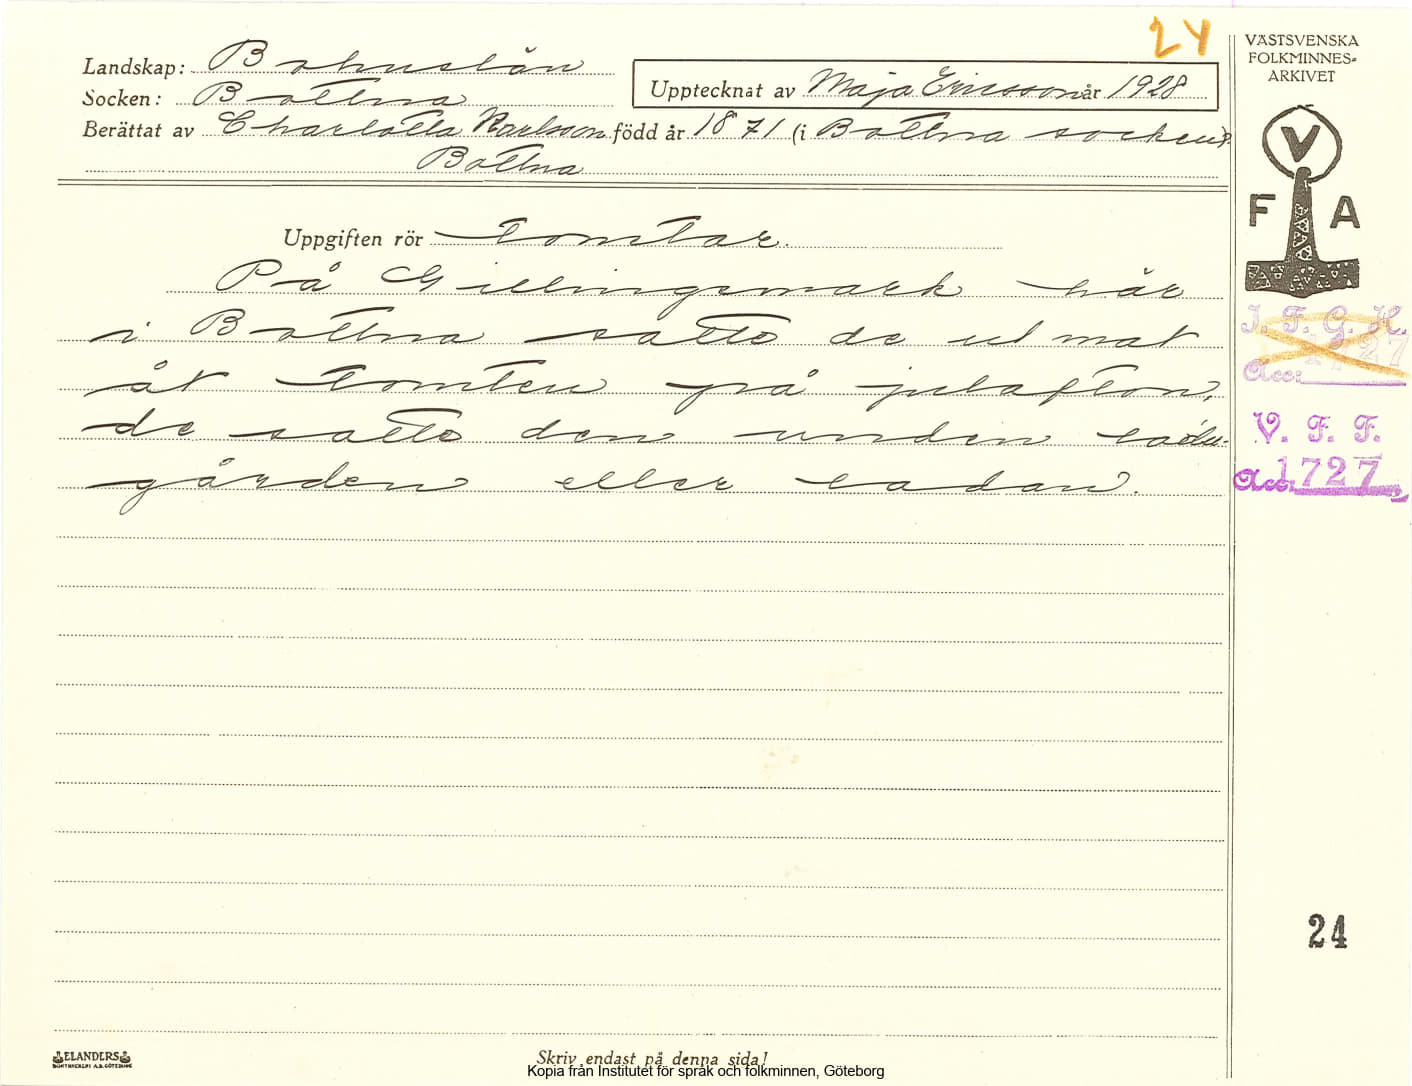 24
Landskap: Bohuslän
Socken: Bottna
Upptecknat av Maja Ericsson år 1928
Berättat av Charlotta Karlsson född år 1871 (i Bottna socken).
Bottna
Uppgiften rör tomtar.
På Gillingsmark här
i Bottna satte de ut mat
åt tomten på julafton,
de satte den under ladu-
gården eller ladan.
VÄSTSVENSKA
FOLKMINNES-
ARKIVET
V
F A
I. F. G. H.
Acc:
V. F. F.
Acc. 1727
24
ELANDERS
BOKTRYCKERI A.B. GÖTEBORG
Skriv endast på denna sida!
Kopia från Institutet för språk och folkminnen, Göteborg